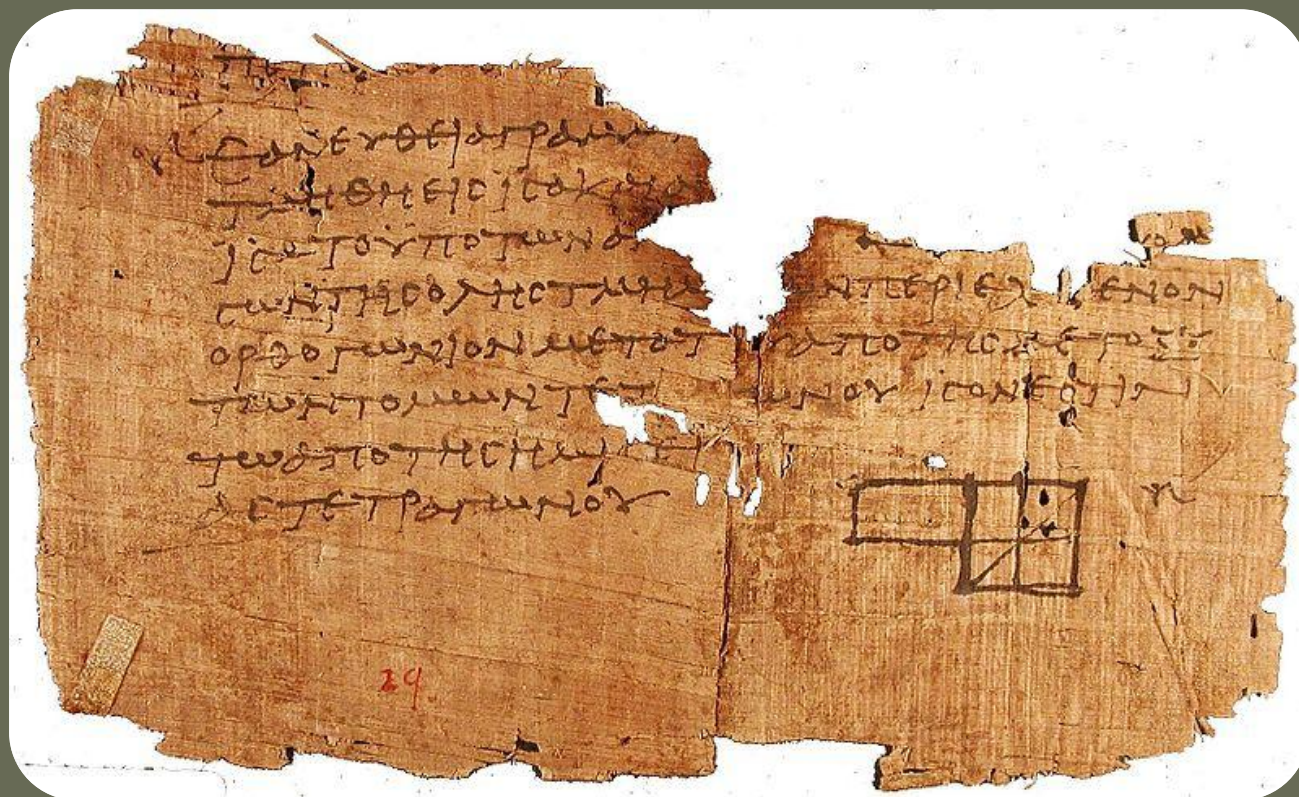 ΕΑΝ ΕΥΘΕΙΑ ΓΡΑΜ
ΤΜΗΘΗ ΕΙϹ ΙϹΑ ΚΑΙ
ΙϹΑ ΤΟ ΥΠΟ ΤΩΝ Α
ϹΩΝ ΤΗϹ ΟΛΗϹ ΤΜΗΜ ΩΝ ΠΕΡΙΕΧ ΜΕΝΟΝ
ΟΡΘΟΓΩΝΙΟΝ ΜΕΤΑ Τ ΑΠΟ ΤΗϹ ΜΕΤΟΞΥ
ΤΩΝ ΤΟΜΩΝ ΤΕΤ ΩΝΟΥ ΙϹΟΝ ΕϹΤΙΝ
ΤΩ ΑΠΟ ΤΗϹ ΗΜΙϹΕΙ
ΑϹ ΤΕΤΡΑΓΩΝΟΥ
29